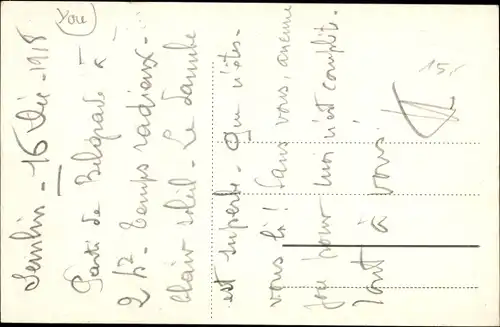 You
15,-
Semlin - 16 Déc - 1918
Parti de Belgrade à
2 h½ - Temps radieux -
clair soleil - Le Danube
est superbe - Que n'êtes-
vous là ! Sans vous, aucune
joie pour moi n'est complète.
Tout à vous.